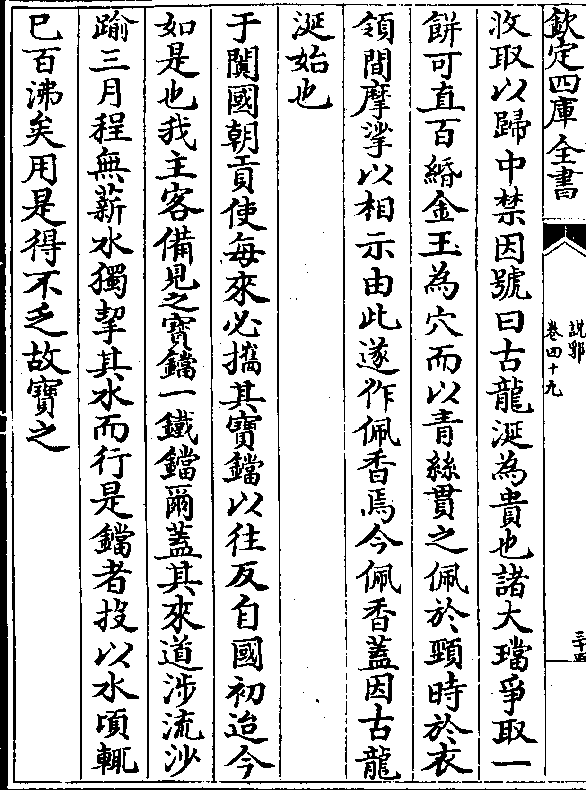 欽定四庫全書
收取以歸中禁因號曰古龍涎為貴也諸大璫爭取一
餅可直百緡金玉為穴而以青絲貫之佩於頸時於衣
領間摩挲以相示由此遂作佩香焉今佩香蓋因古龍
涎始也
于闐國朝貢使每來必攜其寶鐺以往反自國初迨今
如是也我主客備見之寶鐺一鐵鐺爾蓋其來道涉流沙
踰三月程無薪水獨挈其水而行是鐺者投以水頃輒
已百沸矣用是得不乏故寶之
說郛
卷四十九
三十四